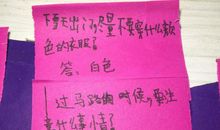 下雪天出门尽量不要穿什么颜
色的衣服?
答、白色
过马路的时候,要注
意什么事情?